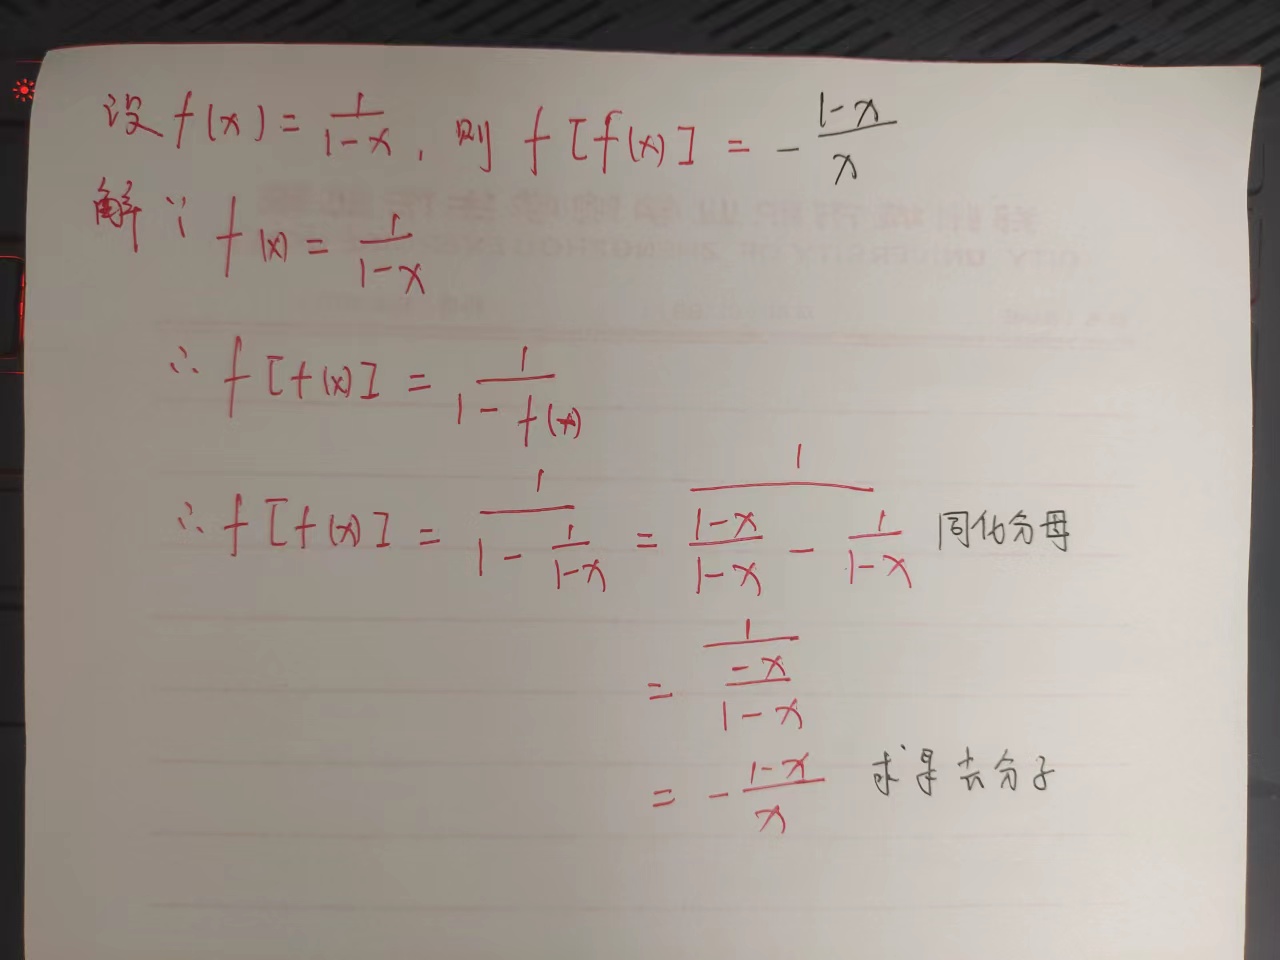 设 f(x) = 1/(1-x), 则 f[f(x)] = -(1-x)/x
解 ∵ f(x) = 1/(1-x)
∴ f[f(x)] = 1/(1-f(x))
∴ f[f(x)] = 1/(1-1/(1-x)) = 1/((1-x)/(1-x) - 1/(1-x)) 同化分母
= 1/(-x/(1-x))
= -(1-x)/x 去分子